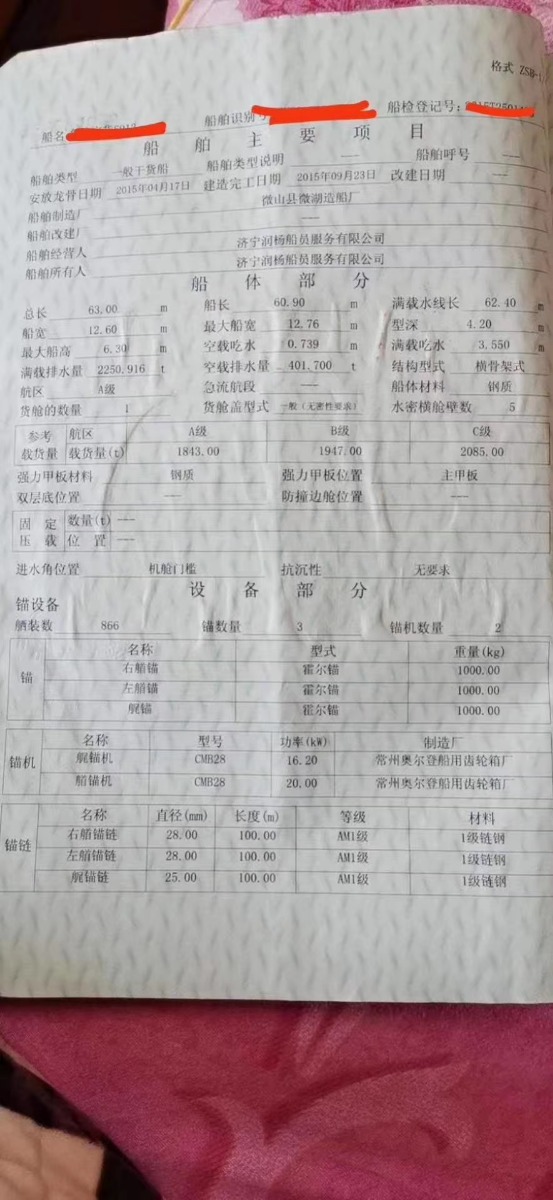 格式 ZSB-1
船名 船舶识别号 船检登记号:
船 舶 主 要 项 目
船舶类型 一般干货船 船舶类型说明 —— 船舶呼号 ——
安放龙骨日期 2015年04月17日 建造完工日期 2015年09月23日 改建日期 ——
船舶制造厂 微山县微湖造船厂
船舶改建厂 ——
船舶经营人 济宁润杨船员服务有限公司
船舶所有人 济宁润杨船员服务有限公司
船 体 部 分
总长 63.00 m 船长 60.90 m 满载水线长 62.40 m
船宽 12.60 m 最大船宽 12.76 m 型深 4.20 m
最大船高 6.30 m 空载吃水 0.739 m 满载吃水 3.550 m
满载排水量 2250.916 t 空载排水量 401.700 t 结构型式 横骨架式
航区 A级 急流航段 —— 船体材料 钢质
货舱的数量 1 货舱盖型式 一般（无密性要求） 水密横舱壁数 5
参考 航区 A级 B级 C级
载货量 载货量(t) 1843.00 1947.00 2085.00
强力甲板材料 钢质 强力甲板位置 主甲板
双层底位置 —— 防撞边舱位置 ——
固 定 数量(t) ——
压 载 位 置 ——
进水角位置 机舱门槛 抗沉性 无要求
设 备 部 分
锚设备
舾装数 866 锚数量 3 锚机数量 2
锚 名称 型式 重量(kg)
右艏锚 霍尔锚 1000.00
左艏锚 霍尔锚 1000.00
艉锚 霍尔锚 1000.00
锚机 名称 型号 功率(kW) 制造厂
艉锚机 CMB28 16.20 常州奥尔登船用齿轮箱厂
艏锚机 CMB28 20.00 常州奥尔登船用齿轮箱厂
锚链 名称 直径(mm) 长度(m) 等级 材料
右艏锚链 28.00 100.00 AM1级 1级链钢
左艏锚链 28.00 100.00 AM1级 1级链钢
艉锚链 25.00 100.00 AM1级 1级链钢